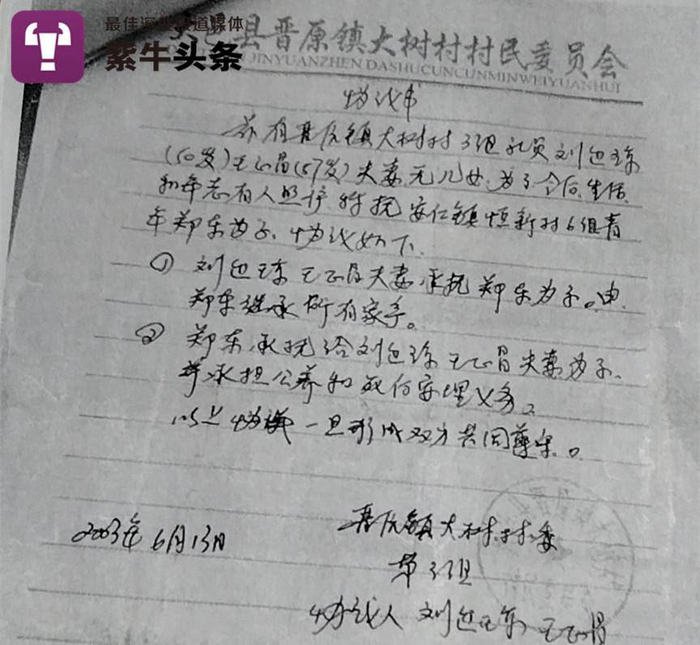 最佳深度报道媒体
紫牛头条
县晋原镇大树村村民委员会
JINYUANZHEN DASHUCUNCUNMINWEIYUANHUI
协议书
兹有晋原镇大树村3组社员刘
(50岁)王正昌(57岁)夫妻无儿女.为了今后生活
和年老有人照护 特抚安仁镇恒新村6组青
年郑东为子.协议如下.
① 刘 王正昌夫妻.承抚郑东为子。由
郑东继承所有家产。
② 郑东.承抚给刘 王正昌夫妻为子.
并承担公养和死后安埋义务。
以上协议一旦形成双方共同遵守。
2003年6月13日
晋原镇大树村.村委
第3组
协议人 刘 王正昌